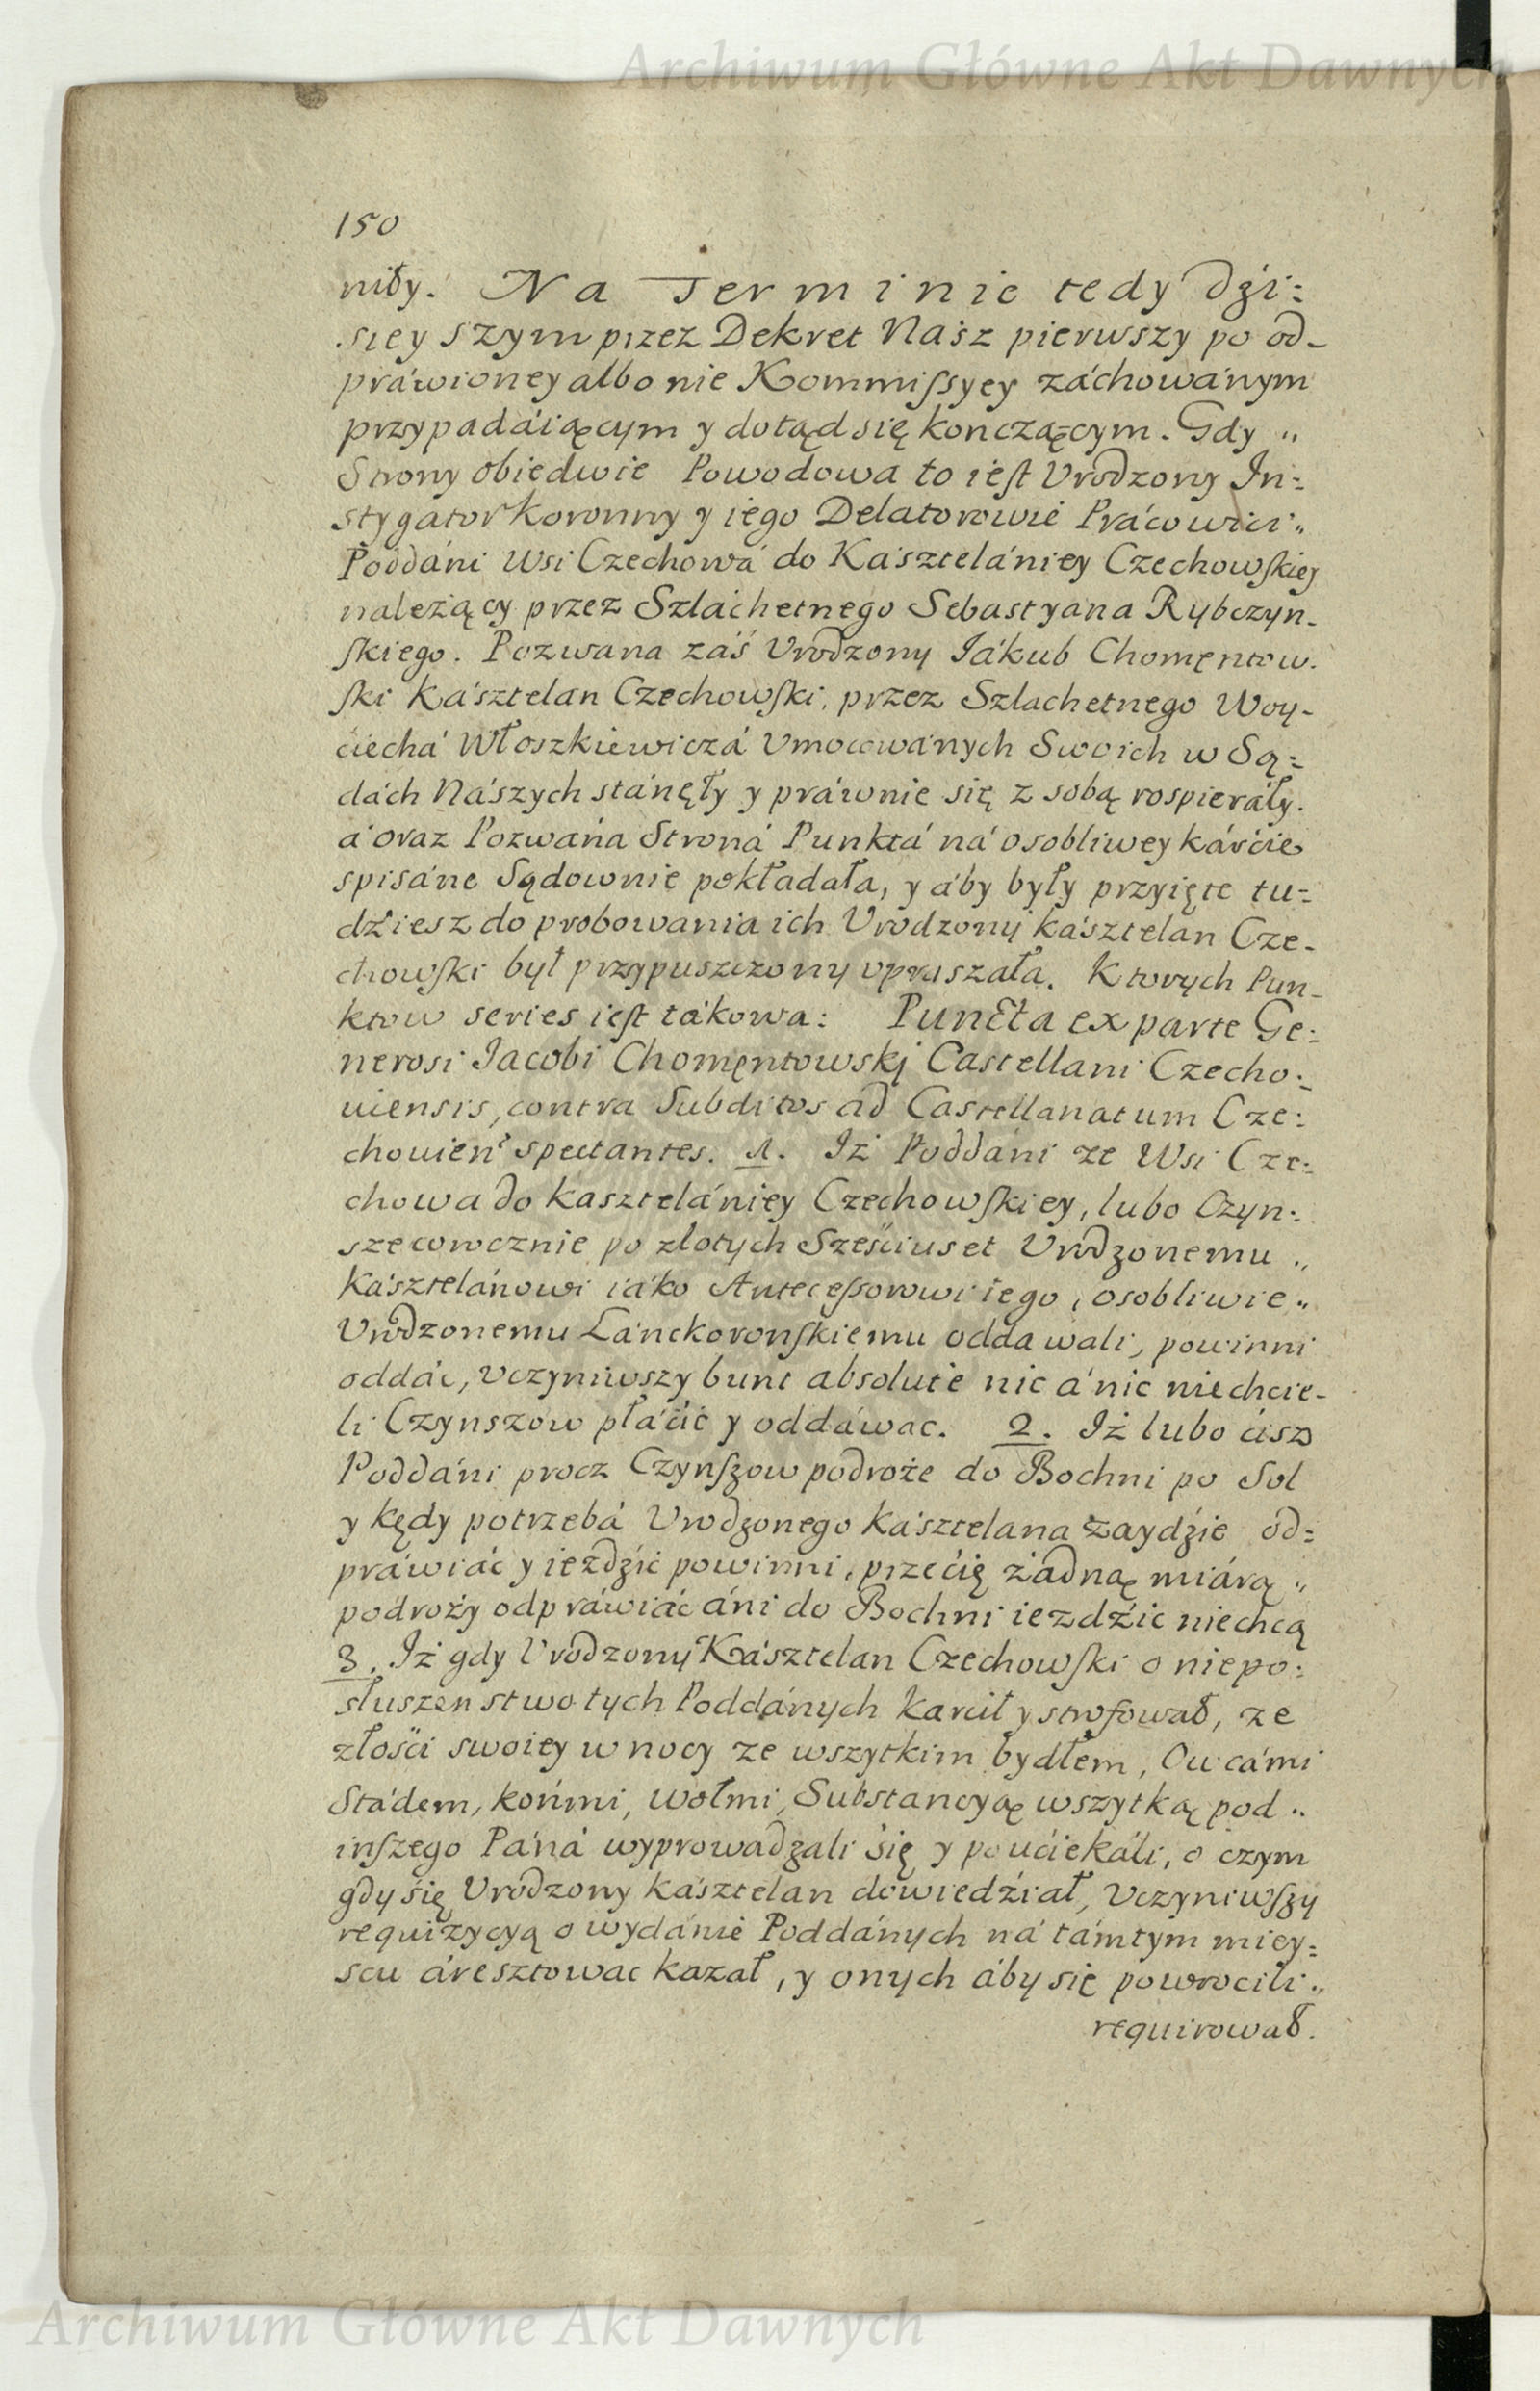 Archiwum Główne Akt Dawnych
150
niły. Na Terminie tedy dzi=
sieyszym przez Dekret Nász pierwszy po od-
práwioney albo nie Kommiſsyey záchowánym
przypadáiącym y dotąd się kończącym. Gdy „
Strony obiedwie Powodowa to ieſt Vrodzony In=
stygator Koronny y iego Delatorowie Prácowici „
Poddáni Wsi Czechowá do Kásztelániey Czechowſkiey
należący przez Szláchetnego Sebastyana Rybczyn-
ſkiego. Pozwana záś Vrodzony Iákub Chomęntow-
ſki Kásztelan Czechowſki, przez Szlachetnego Woy-
ciechá Włoszkiewiczá Vmocowánych Swoich w Są=
dách Nászych stánęły y práwnie się z sobą rospieráły.
á oraz Pozwána Stroná Punktá ná osobliwey kárcie
spisáne Sądownie pokładała, y áby były przyięte tu=
dziesz do probowania ich Vrodzony kásztelan Cze-
chowſki był przypuszczony vpraszała. Ktorych Pun-
ktow series ieſt tákowa: Puncta ex parte Ge=
nerosi Iacobi Chomęntowskj Castellani Czecho=
uiensis, contra Subditos ad Castellanatum Cze=
chouien spectantes. 1. Iż Poddáni ze Wsi Cze=
chowa do kasztelániey Czechowſkiey, lubo Czyn=
sze corocznie po złotych Sześciuset Vrodzonemu „
Kásztelánowi iáko Anteceſsorowi iego, osobliwie „
Vrodzonemu Lánckoronſkiemu oddawali, powinni
oddáć, Vczyniwszy bunt absolute nic á nic niechcie-
li Czynszow płáćić y oddáwac. 2. Iż lubo cisz
Poddáni procz Czynſzow podroże do Bochni po Sol
y kędy potrzebá Vrodzonego Kásztelana zaydzie od=
práwiáć y iezdzić powinni, przecię żadną miárą „
podroży odpráwiáć áni do Bochni iezdzić niechcą
3. Iż gdy Vrodzony Kásztelan Czechowſki o niepo=
słuszenstwo tych Poddánych karcił y strofował, ze
złości swoiey w nocy ze wszytkim bydłem, Owcámi
Stádem, końmi, wołmi, Substancyą wszytką pod „
inſzego Páná wyprowadzali się y pouciekáli, o czym
gdy się Vrodzony kásztelan dowiedział, Vczyniwſzy
requizycyą o wydánie Poddánych ná támtym miey=
scu áresztowac kazał, y onych áby się powrocili „
requirował.
Archiwum Główne Akt Dawnych